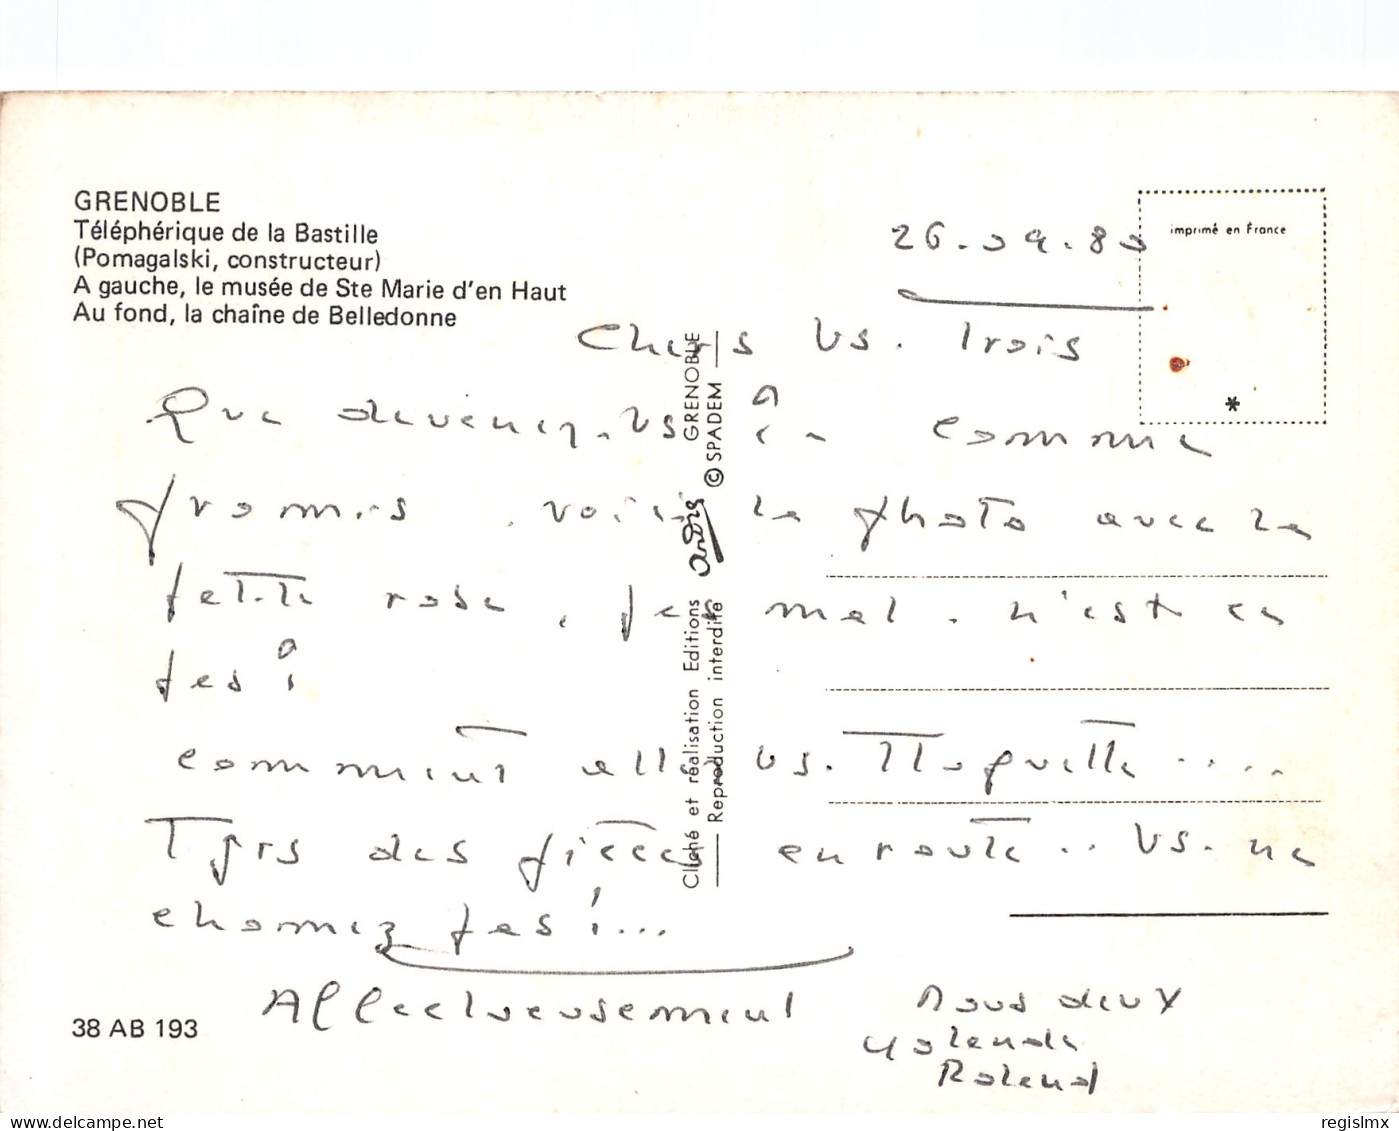 GRENOBLE
Téléphérique de la Bastille
(Pomagalski, constructeur)
A gauche, le musée de Ste Marie d'en Haut
Au fond, la chaîne de Belledonne
imprimé en France
*
26.09.80
Chers Vs. Trois
Que devenez-Vs ? comme
promis, voici la photo avec la
petite rose, pas mal, n'est ce
pas ?
comment allez Vs.
Tjrs des pièces en route .. Vs. ne
chomez pas !...
Affectueusement
Nous deux
Yolande
Roland
Cliché et réalisation Editions André GRENOBLE
Reproduction interdite © SPADEM
38 AB 193
regislmx